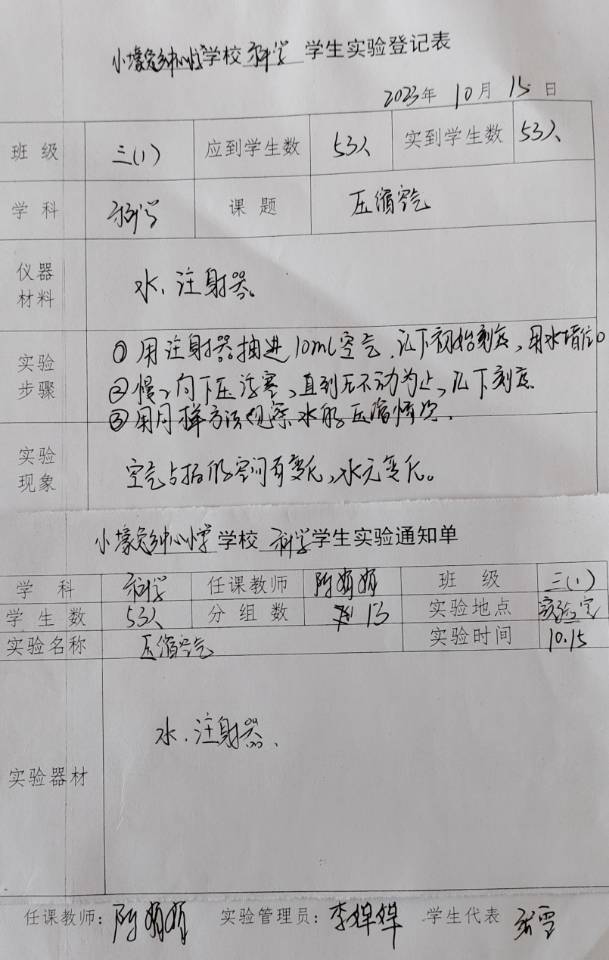 小壕兔乡中心小学学校 科学 学生实验登记表
2023年 10月 15日
班 级 三(1) 应到学生数 53人 实到学生数 53人
学 科 科学 课 题 压缩空气
仪器材料 水、注射器。
实验步骤 ① 用注射器抽进10ml空气,记下初始刻度,用水堵住。
② 慢慢向下压活塞,直到压不动为止,记下刻度。
③ 用同样方法观察水的压缩情况.
实验现象 空气占据的空间有变化,水无变化。
小壕兔乡中心小学学校 科学学生实验通知单
学 科 科学 任课教师 陈娟娟 班 级 三(1)
学 生 数 53人 分 组 数 13 实验地点 实验室
实验名称 压缩空气 实验时间 10.15
实验器材 水.注射器、
任课教师:陈娟娟 实验管理员:李婵婵 学生代表 张雪